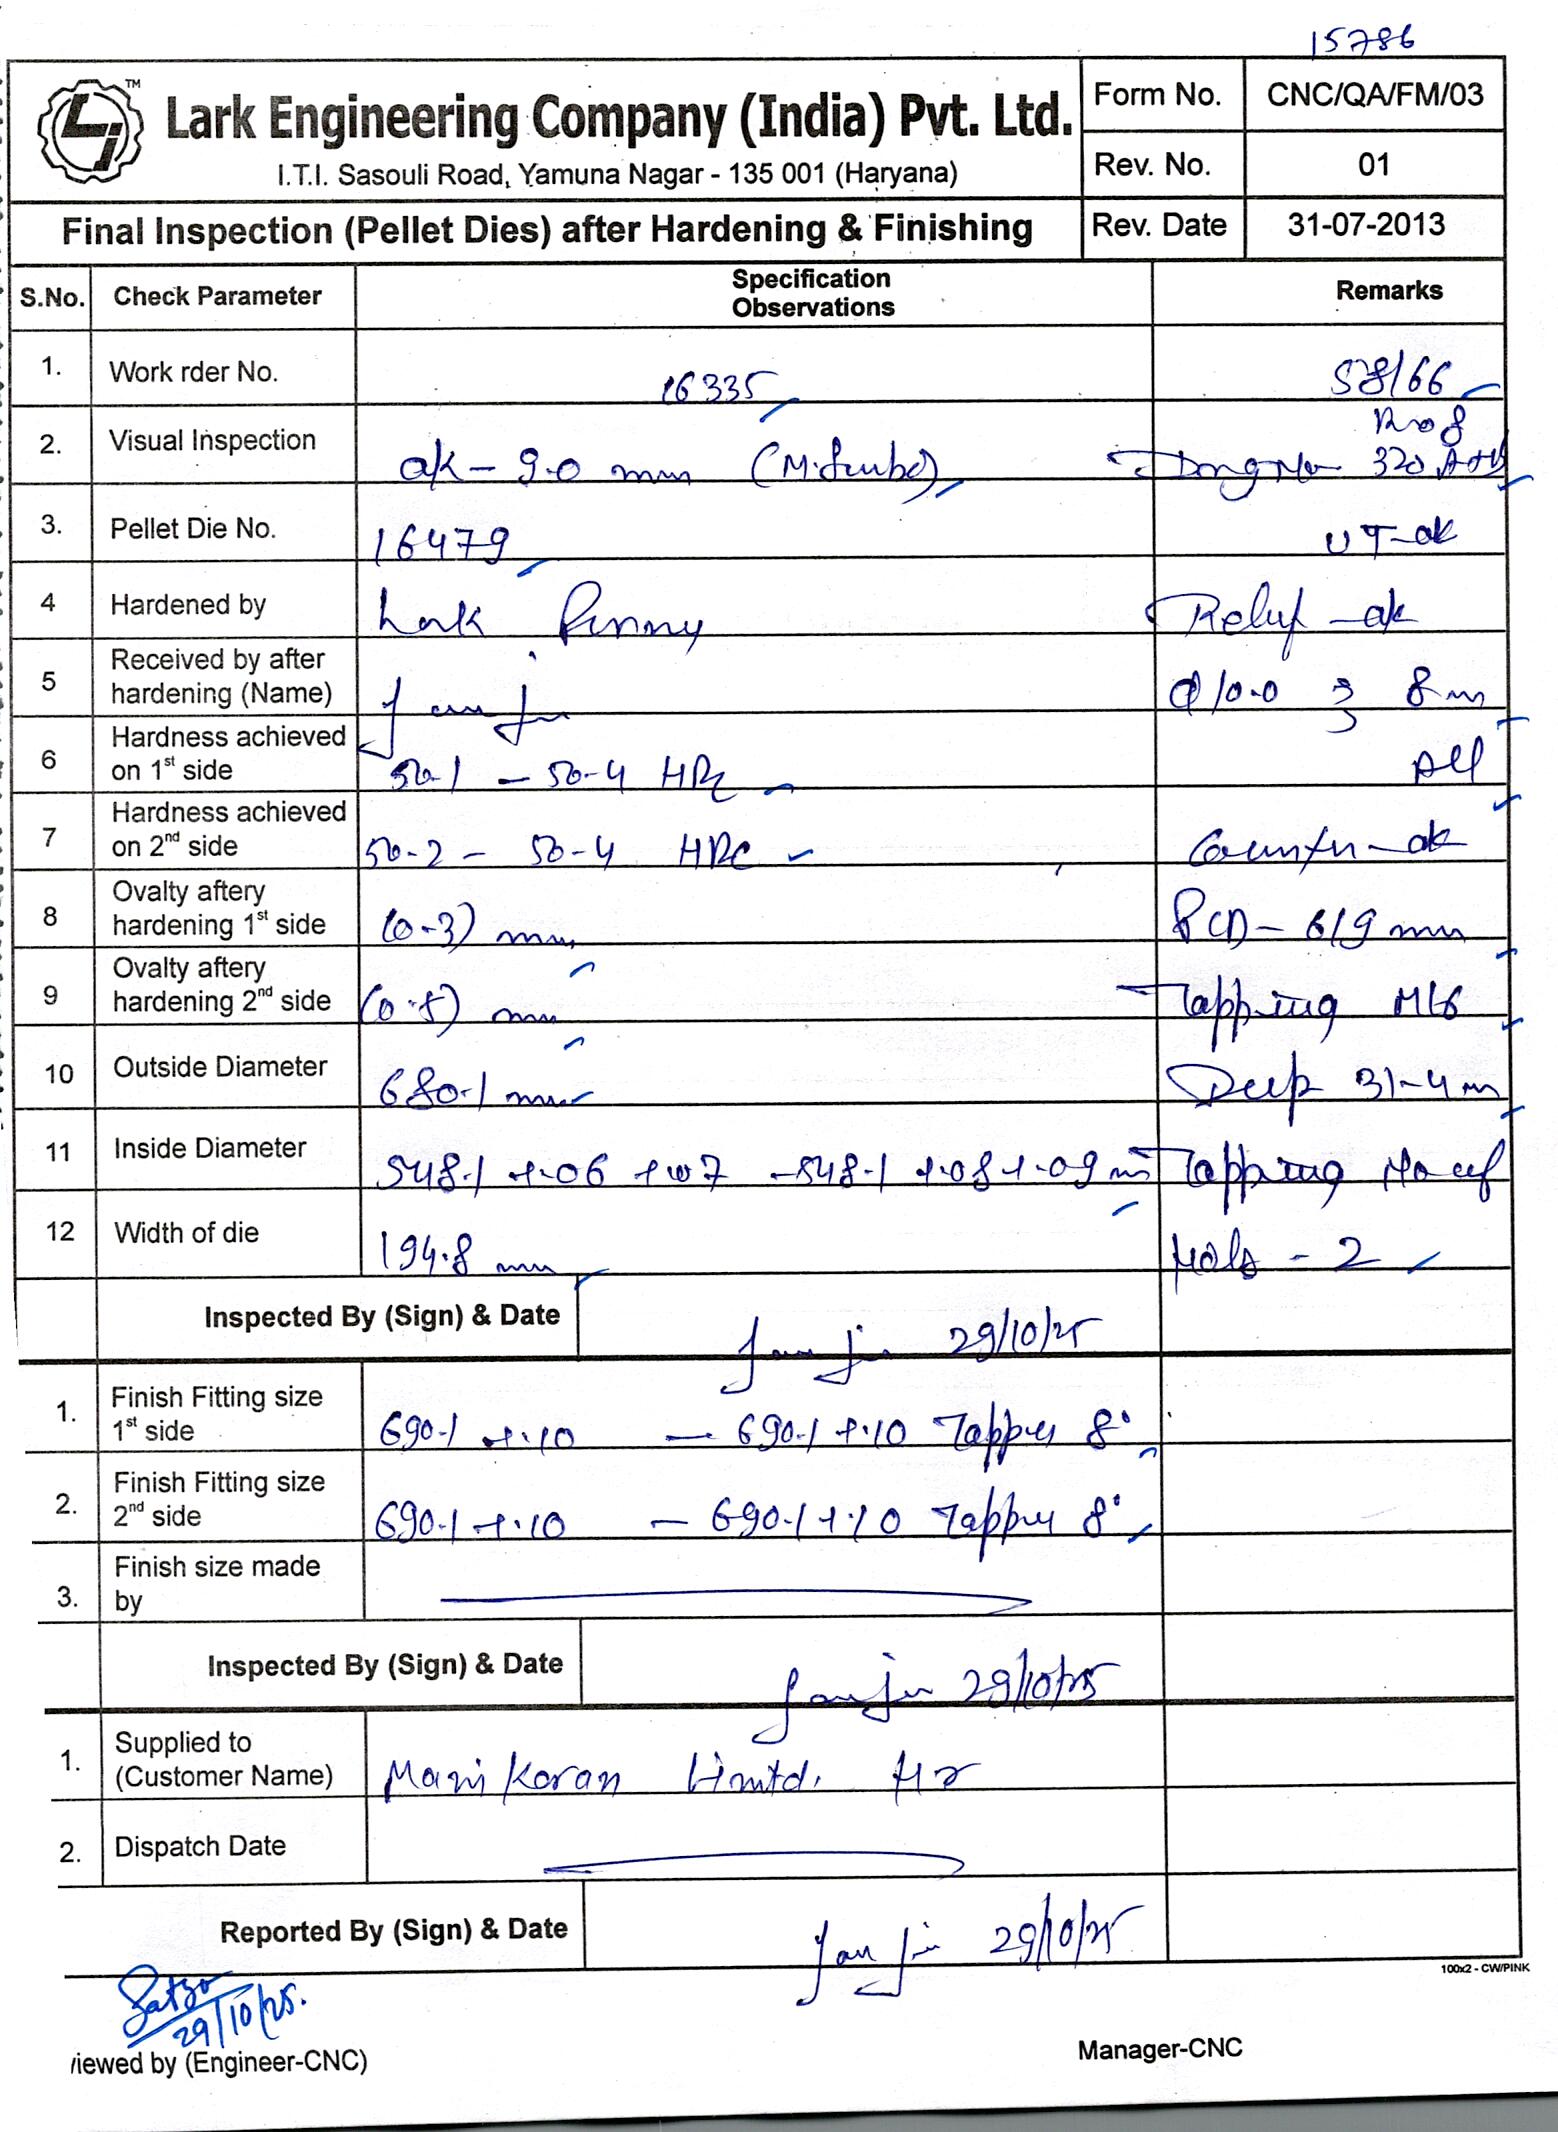 15786
TM
Lark Engineering Company (India) Pvt. Ltd.
I.T.I. Sasouli Road, Yamuna Nagar - 135 001 (Haryana)
Form No. CNC/QA/FM/03
Rev. No. 01
Final Inspection (Pellet Dies) after Hardening & Finishing
Rev. Date 31-07-2013
S.No. Check Parameter Specification Observations Remarks
1. Work rder No. 16335 578/66
2. Visual Inspection ok - 9.0 mm 320
3. Pellet Die No. 16479 UT-ok
4 Hardened by Lark Relief - ok
5 Received by after hardening (Name) 10.0 8 m
6 Hardness achieved on 1st side 50.1 - 50-4 HRC All
7 Hardness achieved on 2nd side 50-2 - 50-4 HRC Counter - ok
8 Ovalty aftery hardening 1st side (0-3) mm PCD - 619 mm
9 Ovalty aftery hardening 2nd side (0.5) mm Tapping M16
10 Outside Diameter 680.1 mm Deep 31-4 m
11 Inside Diameter 548.1 +.06 +.07 - 548.1 +.08 +.09 m Tapping No of
12 Width of die 194.8 mm Hols - 2
Inspected By (Sign) & Date 29/10/25
1. Finish Fitting size 1st side 690.1 +.10 - 690.1 +.10 Tapper 8°
2. Finish Fitting size 2nd side 690.1 +.10 - 690.1 +.10 Tapper 8°
3. Finish size made by
Inspected By (Sign) & Date 29/10/25
1. Supplied to (Customer Name) Mani Karan Limtd. Hr
2. Dispatch Date
Reported By (Sign) & Date 29/10/25
100x2 - CW/PINK
29/10/25.
iewed by (Engineer-CNC)
Manager-CNC